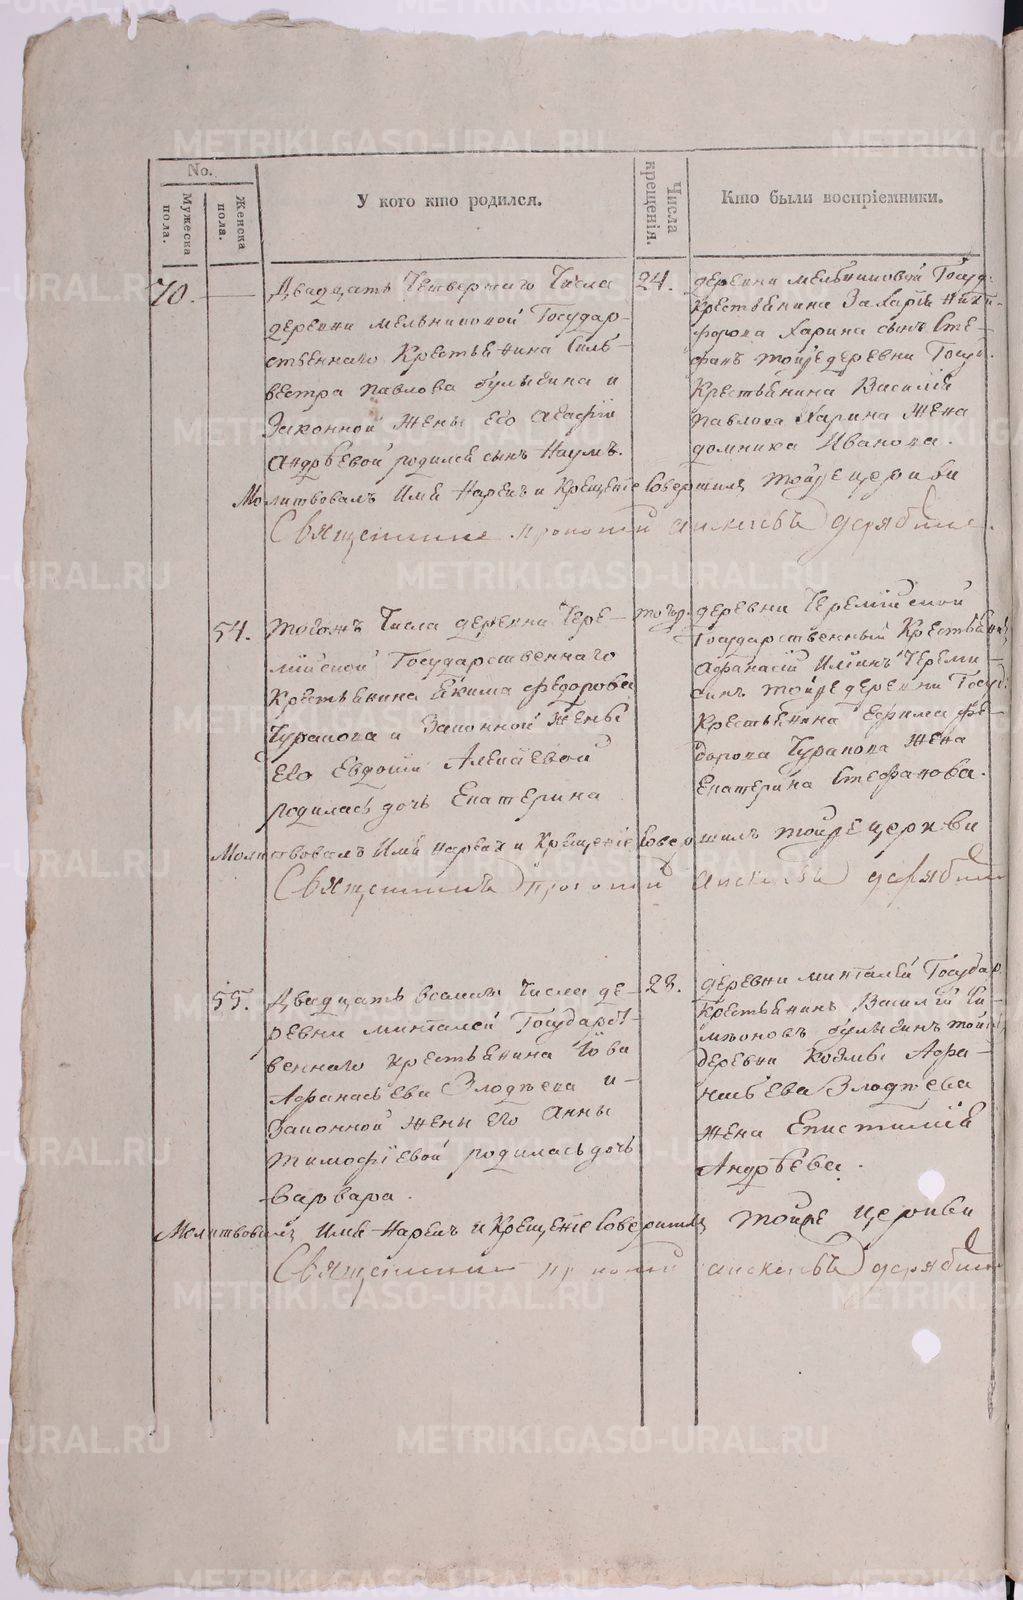 No.
Мужеска пола.
Женска пола.
У кого кто родился.
Числа крещенія.
Кто были воспріемники.
70.
Двадцать Четвертаго Числа
деревни Мельниковой Государ-
ственнаго Крестьянина Силь-
вестра Павлова Булыгина и
Законной Жены его Агафіи
Андрѣевой родился сынъ Наумъ.
24.
деревни Мельниковой Госуд.
Крестьянина Захарія Ники-
форова Харина сынъ Сте-
фанъ тойже деревни Госуд.
Крестьянина Василія
Павлова Харина Жена
домника Иванова.
Молитвовалъ Имя Нарекъ и Крещеніе Совершилъ тойже церкви
Священникъ Прокопій Алексѣевъ Дерябинъ.
54.
тогожъ Числа деревни Чере-
мійской Государственнаго
Крестьянина Якима Федорова
Чуракова и Законной Жены
его Евдокіи Алексіевой
родилась дочь Екатерина
тогож.
деревни Черемійской
Государственный Крестьянинъ
Афанасій Ильинъ Череми-
синъ тойже деревни Госуд.
Крестьянина Ефима Фе-
дорова Чуракова Жена
Екатерина Стефанова.
Молитвовалъ Имя нарекъ и Крещеніе Совершилъ тойже церкви
Священникъ Прокопій Алексѣевъ Дерябинъ
55.
Двадцать восьмаго Числа де-
ревни Минталей Государст-
веннаго крестьянина Іова
Афанасьева Злодѣева и
Законной жены его Анны
Тимофіевой родилась дочь
Варвара.
28.
деревни Минталей Государ.
Крестьянинъ Василій Си-
мпоновъ Булыгинъ той
деревни Козмы Афа-
насьева Злодѣева
жена Епистимія
Андрѣева.
Молитвовалъ Имя Нарекъ и Крещеніе Совершилъ тойже церкви
Священникъ Прокопій Алексѣевъ Дерябинъ
METRIKI.GASO-URAL.RU